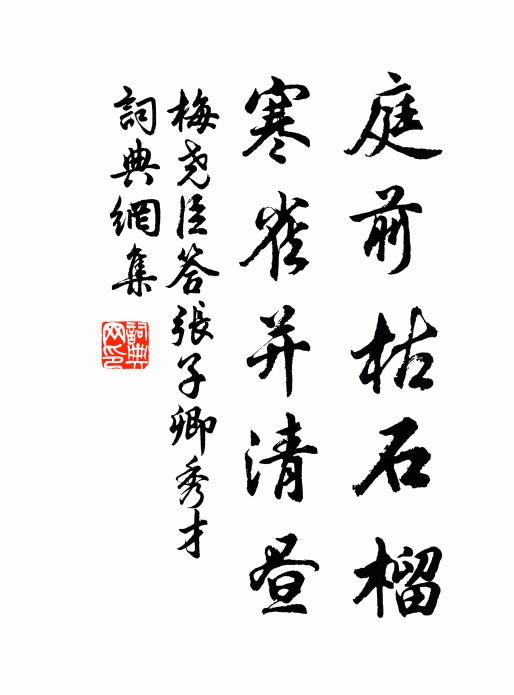 庭前枯石榴
寒雀并清昼
梅尧臣答張子卿秀才
詞典網集
詞典網印